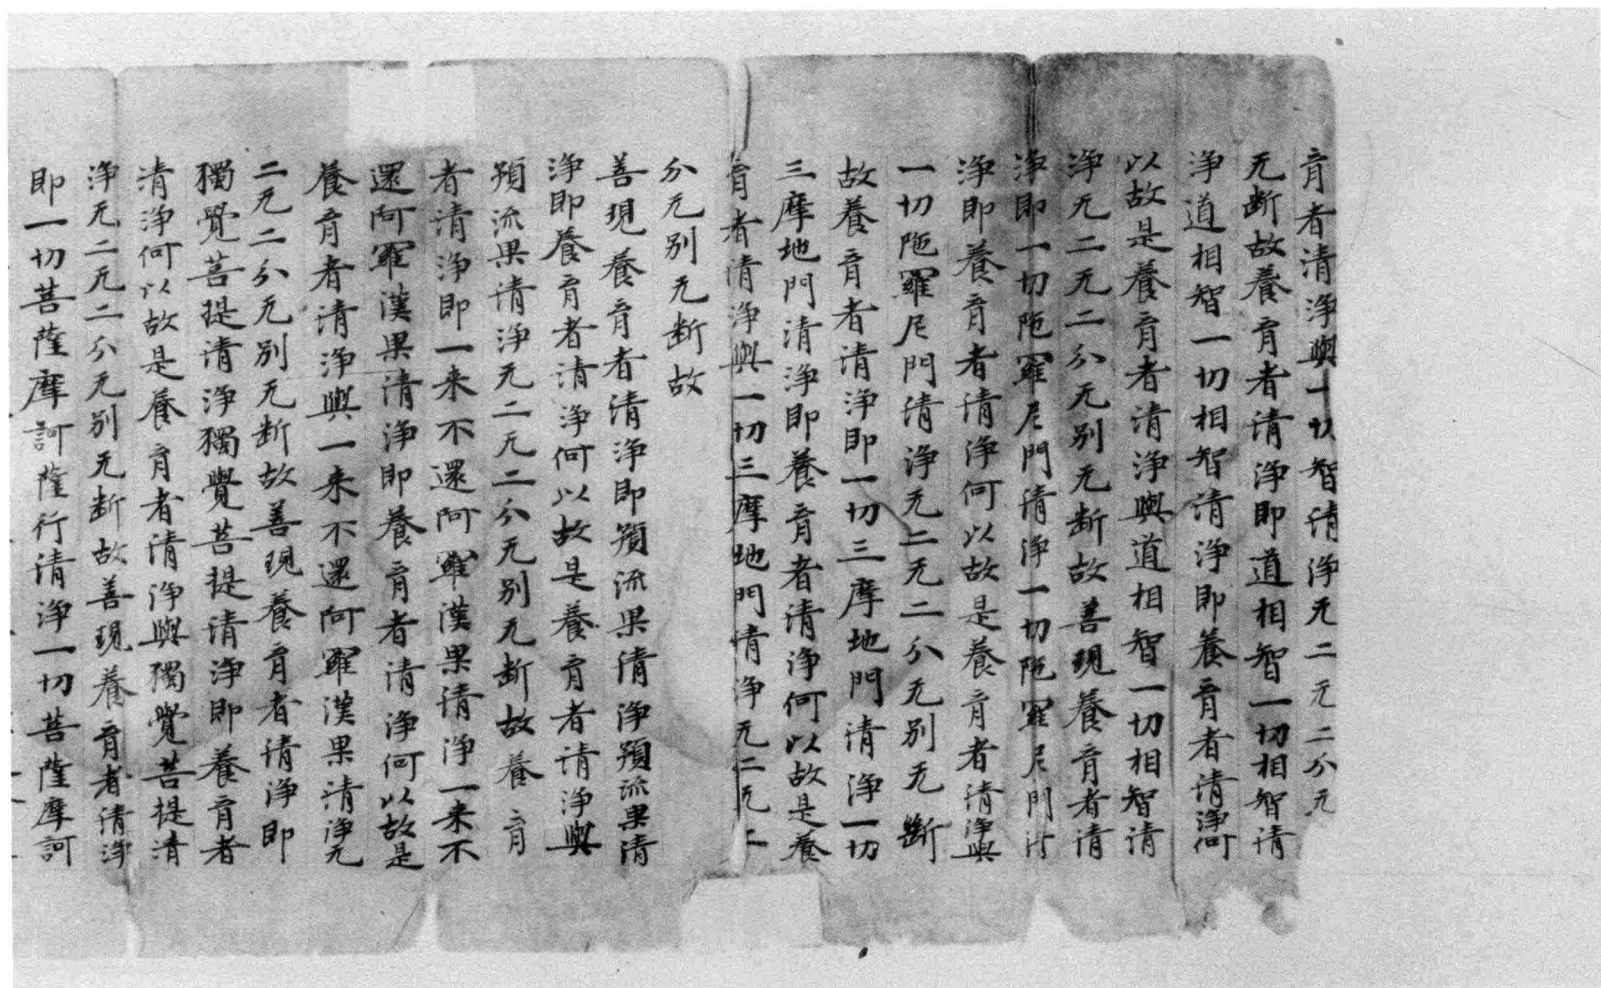 育者清淨與一切智清淨无二无二分无
无断故養育者清淨即道相智一切相智清
淨道相智一切相智清淨即養育者清淨何
以故是養育者清淨與道相智一切相智清
淨无二无二分无别无断故善現養育者清
淨即一切陁羅尼門清淨一切陁羅尼門清
淨即養育者清淨何以故是養育者清淨與
一切陁羅尼門清淨无二无二分无别无斷
故養育者清淨即一切三摩地門清淨一切
三摩地門清淨即養育者清淨何以故是養
育者清淨與一切三摩地門清淨无二无二
分无别无断故
善現養育者清淨即預流果清淨預流果清
淨即養育者清淨何以故是養育者清淨與
預流果清淨无二无二分无别无断故養育
者清淨即一来不還阿羅漢果清淨一来不
還阿羅漢果清淨即養育者清淨何以故是
養育者清淨與一来不還阿羅漢果清淨无
二无二分无别无断故善現養育者清淨即
獨覺菩提清淨獨覺菩提清淨即養育者
清淨何以故是養育者清淨與獨覺菩提清
淨无二无二分无别无断故善現養育者清淨
即一切菩薩摩訶薩行清淨一切菩薩摩訶